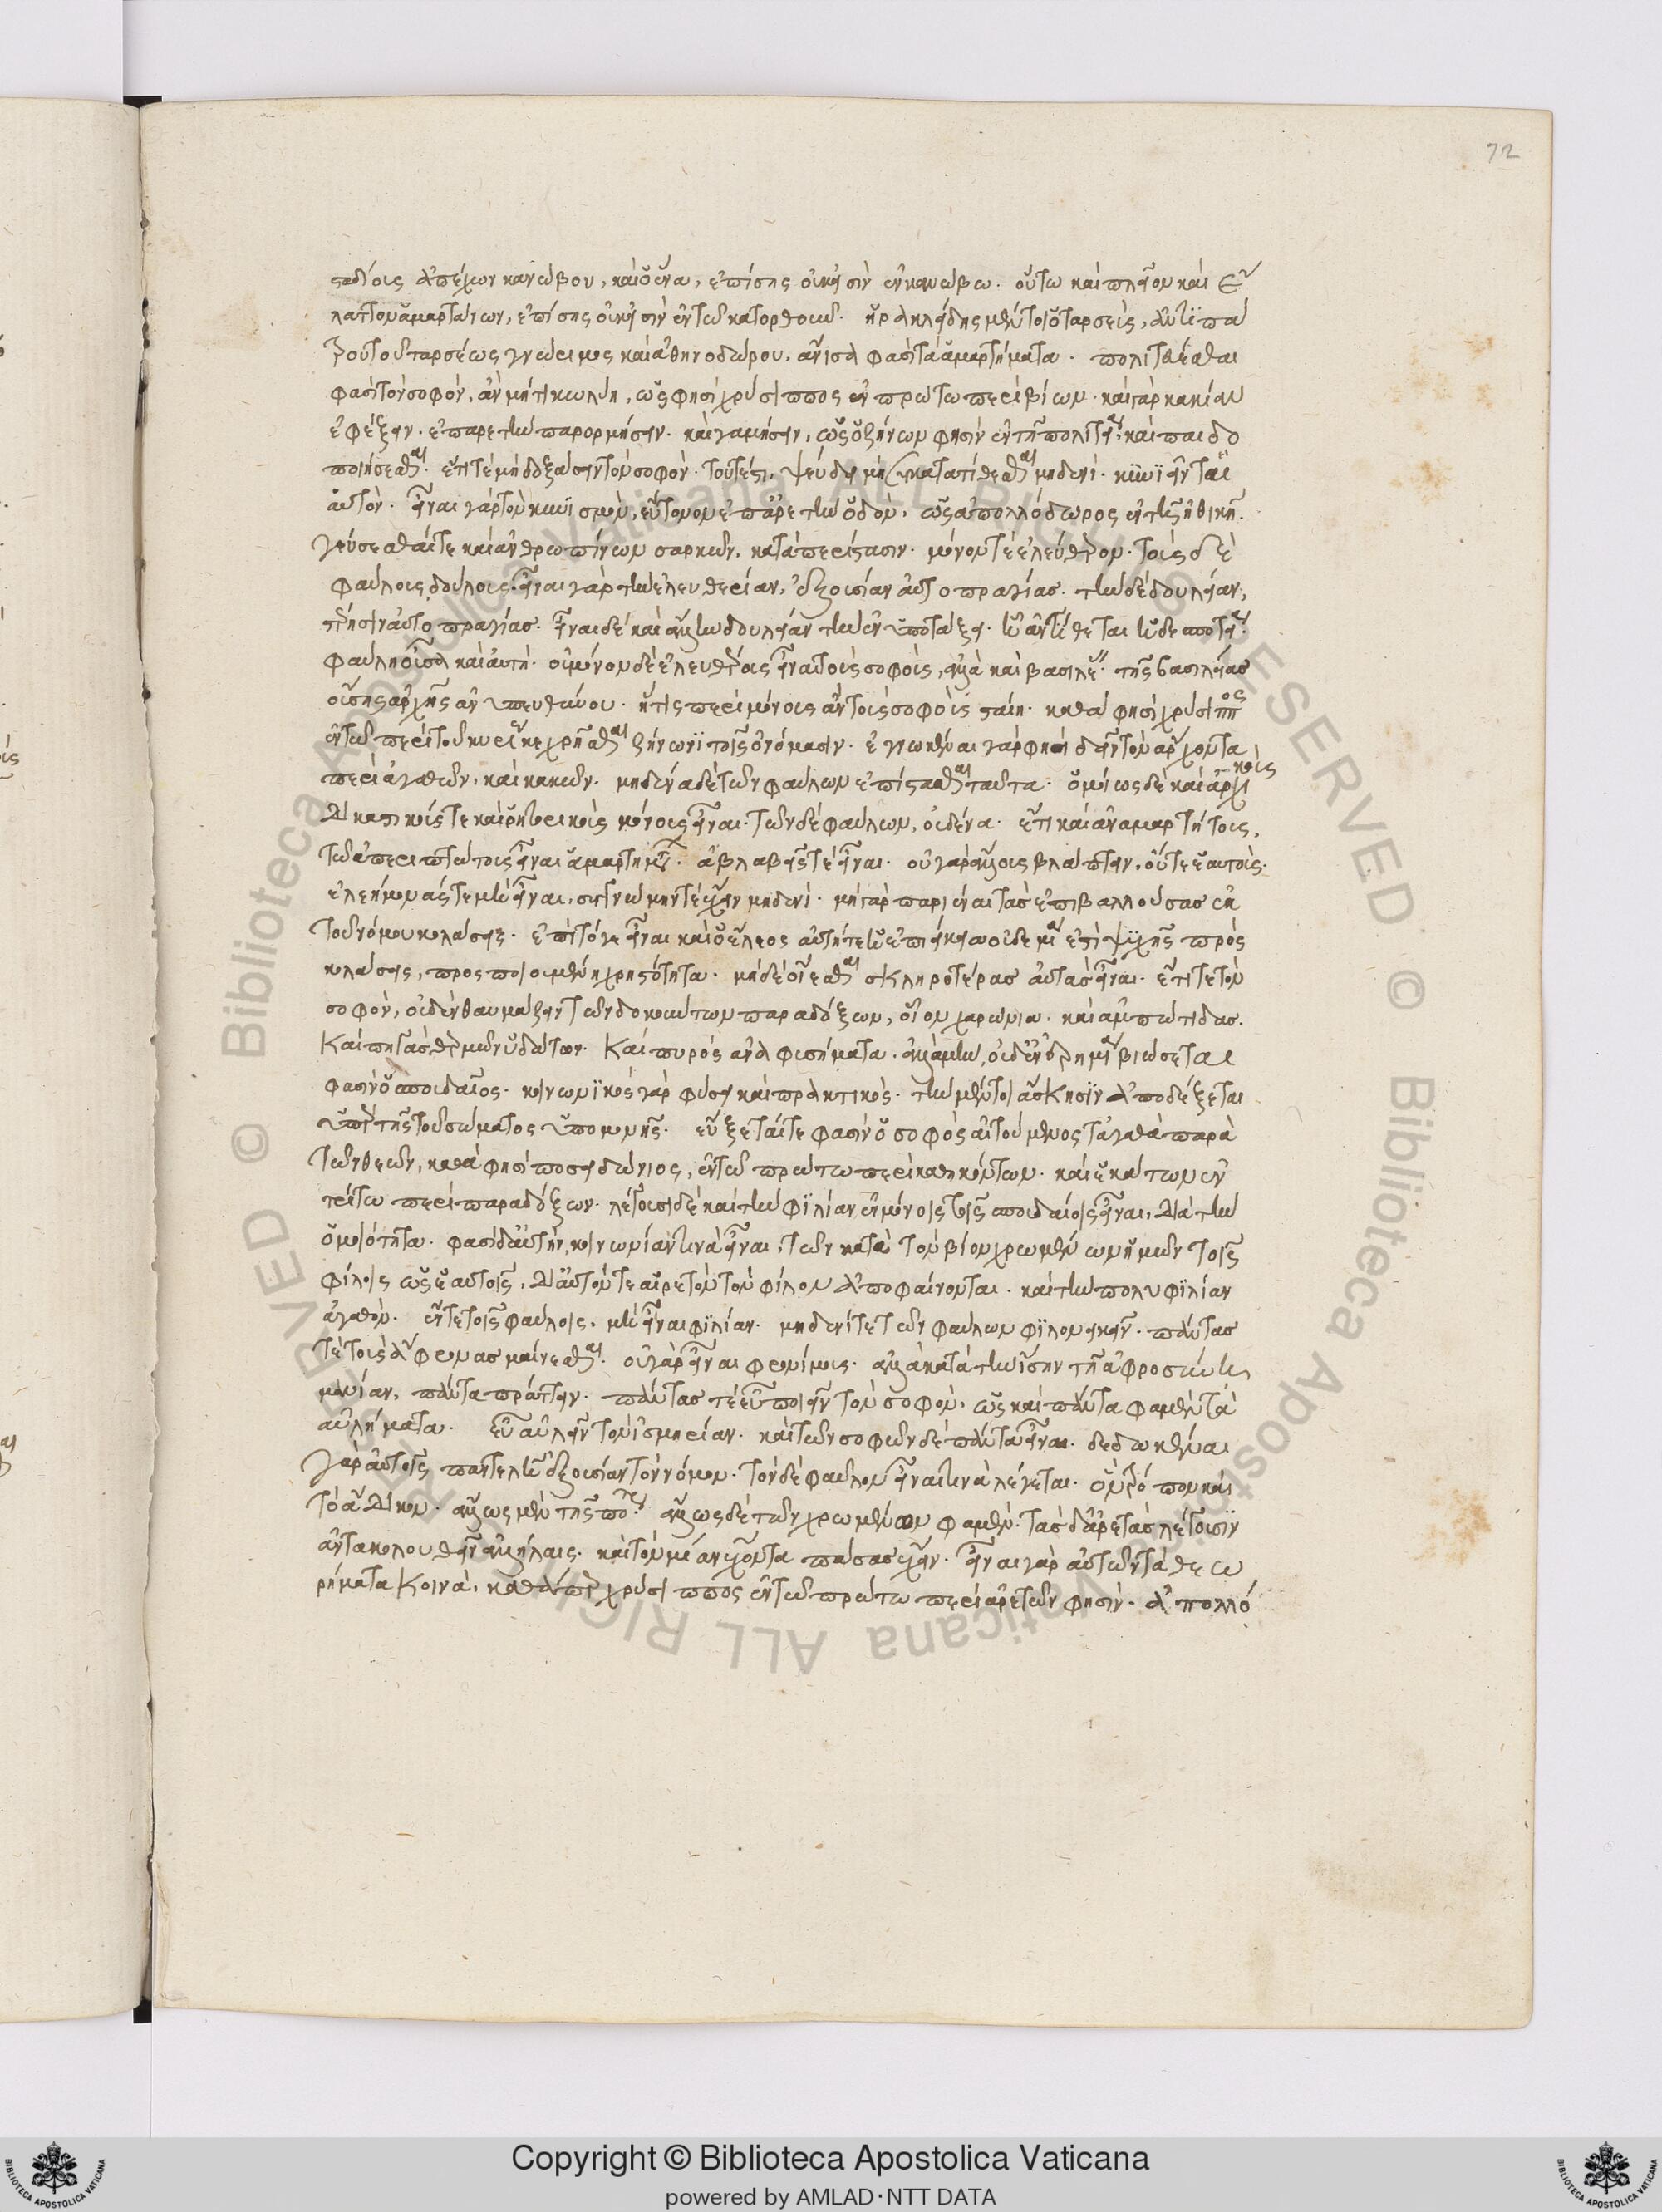 72
σταδίους ἀπέχων κανώβου, καὶ ὁ ἕνα, ἐπίσης οὐκ εἰσὶν ἐν κανώβω. οὕτω καὶ πλεῖον καὶ ἔ
λαττον ἁμαρτάνων, ἐπίσης οὐκ εἰσὶν ἐν τῶ κατορθοῦν. ἡρακλείδης μέντοι ὁ ταρσεὺς, ἀντιπά
τρου τοῦ ταρσέως γνώριμος καὶ ἀθηνόδωρου, ἄνισά φασι τὰ ἁμαρτήματα. πολιτεύεσθαι
φασὶ τὸν σοφὸν, ἂν μή τι κωλύη, ὥς φησι χρύσιππος ἐν πρώτω περὶ βίων. καὶ γὰρ κακίαν
ἐφέξειν. ἐπ' ἀρετὴν παρορμήσειν. καὶ γαμήσειν, ὡς ὁ ζήνων φησὶν ἐν τῇ πολιτεία. καὶ παιδο
ποιήσεσθαι. ἔτι τὲ μὴ δοξάσειν τὸν σοφὸν. τουτέστι, ψεύδει μὴ συγκατατίθεσθαι μηδενί. κυνιεῖν τε
αὐτὸν. εἶναι γὰρ τὸν κυνισμὸν, εὔτονον ἐπ' ἀρετὴν ὁδὸν, ὡς ἀπολλόδωρος ἐν τῆ ἠθικῆ.
γεύσεσθαί τε καὶ ἀνθρωπίνων σαρκῶν, κατὰ περίστασιν. μόνον τὲ ἐλεύθερον. τοὺς δὲ
φαύλους δούλους. εἶναι γὰρ τὴν ἐλευθερίαν, ἐξουσίαν αὐτοπραγίας. τὴν δὲ δουλείαν,
στέρησιν αὐτοπραγίας. εἶναι δὲ καὶ ἄλλην δουλείαν τὴν ἐν ὑποτάξει. ἧ ἀντιτίθεται ἡ δεσποτεία.
φαύλη οὖσα καὶ αὐτή. οὐ μόνον δὲ ἐλευθέρους εἶναι τοὺς σοφοὺς, ἀλλὰ καὶ βασιλεῖς. τῆς βασιλείας
οὔσης ἀρχῆς ἀνυπευθύνου. ἥτις περὶ μόνους ἂν τοὺς σοφοὺς σταίη. καθά φησι χρύσιππος
ἐν τῶ περὶ τοῦ κυρίως κεχρῆσθαι ζήνωνι τοῖς ὀνόμασιν. ἐγνωκέναι γάρ φησι δεῖν τὸν ἄρχοντα
περὶ ἀγαθῶν, καὶ κακῶν. μηδένα δὲ τῶν φαύλων ἐπίστασθαι ταῦτα. ὁμοίως δὲ καὶ ἀρχικοὺς
δικαστικούς τε καὶ ῥητορικοὺς μόνους εἶναι. τῶν δὲ φαύλων, οὐδένα. ἔτι καὶ ἀναμαρτήτους,
τῶ ἀπεριπτώτους εἶναι ἁμαρτήματι. ἀβλαβεῖς τὲ εἶναι. οὐ γὰρ ἄλλους βλάπτειν, οὔτε ἑαυτούς.
ἐλεήμονάς τε μὴ εἶναι, συγγνώμην τὲ ἔχειν μηδενί. μὴ γὰρ παριέναι τὰς ἐπιβαλλούσας ἐκ
τοῦ νόμου κολάσεις. ἐπεὶ τό γε εἴκειν καὶ ὁ ἔλεος αὐτή τε ἡ ἐπιείκεια οὐδένειά ἐστι ψυχῆς πρὸς
κολάσεις, προσποιουμένη χρηστότητα. μηδὲ οἴεσθαι σκληροτέρας αὐτὰς εἶναι. ἔτι τε τὸν
σοφὸν, οὐδὲν θαυμάζειν τῶν δοκούντων παραδόξων, οἷον χαρώνια. καὶ ἀμπώτιδας.
καὶ πηγὰς θερμῶν ὑδάτων. καὶ πυρὸς ἀναφυσήματα. ἀλλὰ μὴν, οὐδ' ἐν ἐρημία βιώσεται
φασὶν ὁ σπουδαῖος. κοινωνικὸς γὰρ φύσει καὶ πρακτικός. τὴν μέντοι ἄσκησιν ἀποδέξεται
ὑπὲρ τῆς τοῦ σώματος ὑπομονῆς. εὔξεταί τε φασὶν ὁ σοφὸς αἰτούμενος τὰ ἀγαθὰ παρὰ
τῶν θεῶν, καθά φησι ποσειδώνιος, ἐν τῶ πρώτω περὶ καθηκόντων. καὶ ἑκάτων ἐν
τρίτω περὶ παραδόξων. λέγουσι δὲ καὶ τὴν φιλίαν ἐν μόνοις τοῖς σπουδαίοις εἶναι, διὰ τὴν
ὁμοιότητα. φασὶ δ' αὐτὴν, κοινωνίαν τινὰ εἶναι, τῶν κατὰ τὸν βίον χρωμένων ἡμῶν τοῖς
φίλοις ὡς ἑαυτοῖς. δι' αὐτόν τε αἱρετὸν τὸν φίλον ἀποφαίνονται. καὶ τὴν πολυφιλίαν
ἀγαθὸν. ἔν τε τοῖς φαύλοις, μὴ εἶναι φιλίαν. μηδενί τε τῶν φαύλων φίλον εἶναι. πάντας
τε τοὺς ἄφρονας μαίνεσθαι. οὐ γὰρ εἶναι φρονίμους. ἀλλὰ κατὰ τὴν ἴσην τῆ ἀφροσύνη
μανίαν, πάντα πράττειν. πάντας τὲ εὖ ποιεῖν τὸν σοφὸν, ὡς καὶ πάντα φαμὲν τὰ
αὐλήματα. εὖ αὐλεῖν τὸν ἰσμηνίαν. καὶ τῶν σοφῶν δὲ πάντα εἶναι. δεδωκέναι
γὰρ αὐτοῖς παντελῆ ἐξουσίαν τὸν νόμον. τῶν δὲ φαύλων εἶναί τινα λέγεται. ὃν τρόπον καὶ
τὸ ἄδικον. ἄλλως μὲν τῆς πόλεως. ἄλλως δὲ τῶν χρωμένων φαμέν. τὰς δ' ἀρετὰς λέγουσιν
ἀντακολουθεῖν ἀλλήλαις. καὶ τὸν μίαν ἔχοντα πάσας ἔχειν. εἶναι γὰρ αὐτῶν τὰ θεω
ρήματα κοινὰ, καθάπερ χρύσιππος ἐν τῶ πρώτω περὶ ἀρετῶν φησίν. ἀπολλό
© Biblioteca Apostolica Vaticana ALL RIGHTS RESERVED
Copyright © Biblioteca Apostolica Vaticana
powered by AMLAD·NTT DATA